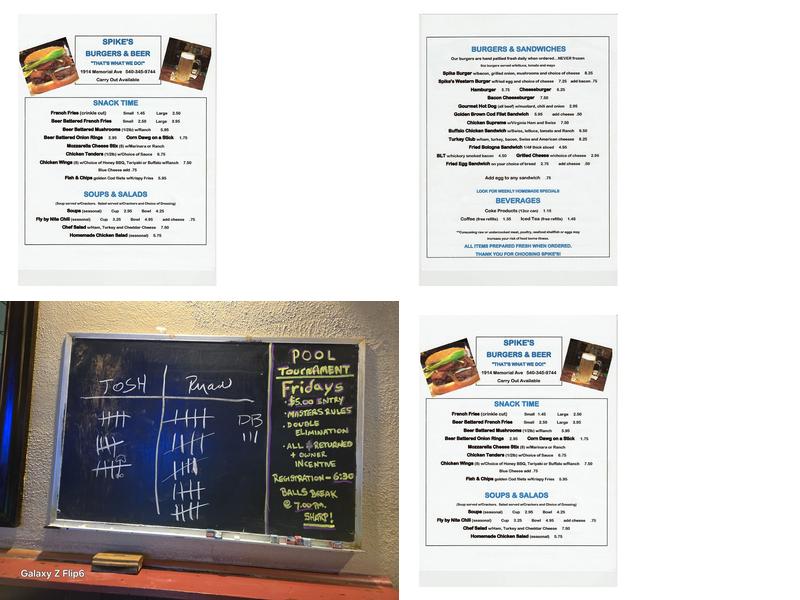 SPIKE'S
BURGERS & BEER
"THAT'S WHAT WE DO!"
1914 Memorial Ave 540-345-9744
Carry Out Available
SNACK TIME
French Fries (crinkle cut) Small 1.45 Large 2.50
Beer Battered French Fries Small 2.50 Large 3.95
Beer Battered Mushrooms (1/2lb) w/Ranch 5.95
Beer Battered Onion Rings 2.95 Corn Dawg on a Stick 1.75
Mozzarella Cheese Stix w/Marinara or Ranch
Chicken Tenders (1/2lb) w/Choice of Sauce 6.75
Chicken Wings (8) w/Choice of Honey BBQ, Teriyaki or Buffalo w/Ranch 7.50
Blue Cheese add .75
Fish & Chips golden Cod filets w/Krispy Fries 5.95
SOUPS & SALADS
(Soup served w/Crackers. Salad served w/Crackers and Choice of Dressing)
Soups (seasonal) Cup 2.95 Bowl 4.25
Fly by Nite Chili (seasonal) Cup 3.25 Bowl 4.95 add cheese .75
Chef Salad w/Ham, Turkey and Cheddar Cheese 7.50
Homemade Chicken Salad (seasonal) 5.75
BURGERS & SANDWICHES
Our burgers are hand pattied fresh daily when ordered...NEVER frozen
Spike Burger w/bacon, grilled onion, mushrooms and choice of cheese 8.25
Spike's Western Burger w/fried egg and choice of cheese 7.25 add bacon .75
Hamburger 5.75 Cheeseburger 6.25
Bacon Cheeseburger 7.50
Gourmet Hot Dog (all beef) w/mustard, chili and onion 2.95
Golden Brown Cod Filet Sandwich 5.95 add cheese .50
Chicken Supreme w/Virginia Ham and Swiss 7.50
Buffalo Chicken Sandwich w/Swiss, lettuce, tomato and Ranch 6.50
Turkey Club w/ham, turkey, bacon, Swiss and American cheeses 8.25
Fried Bologna Sandwich 1/4# thick sliced 4.95
BLT w/hickory smoked bacon 4.50 Grilled Cheese w/choice of cheese 2.95
Fried Egg Sandwich on your choice of bread 2.75 add cheese .50
Add egg to any sandwich .75
LOOK FOR WEEKLY HOMEMADE SPECIALS
BEVERAGES
Coke Products (12oz can) 1.15
Coffee (free refills) 1.35 Iced Tea (free refills) 1.45
**Consuming raw or undercooked meat, poultry, seafood shellfish or eggs may
increase your risk of food borne illness.
ALL ITEMS PREPARED FRESH WHEN ORDERED.
THANK YOU FOR CHOOSING SPIKE'S!
JOSH Ryan
DB
POOL
TOURNAMENT
Fridays
• $5.00 ENTRY
• MASTERS RULES
• DOUBLE
ELIMINATION
• ALL $ RETURNED
+ OWNER
INCENTIVE
REGISTRATION - 6:30
BALLS BREAK
@ 7:00 PM.
SHARP!
Galaxy Z Flip6
SPIKE'S
BURGERS & BEER
"THAT'S WHAT WE DO!"
1914 Memorial Ave 540-345-9744
Carry Out Available
SNACK TIME
French Fries (crinkle cut) Small 1.45 Large 2.50
Beer Battered French Fries Small 2.50 Large 3.95
Beer Battered Mushrooms (1/2lb) w/Ranch 5.95
Beer Battered Onion Rings 2.95 Corn Dawg on a Stick 1.75
Mozzarella Cheese Stix w/Marinara or Ranch
Chicken Tenders (1/2lb) w/Choice of Sauce 6.75
Chicken Wings (8) w/Choice of Honey BBQ, Teriyaki or Buffalo w/Ranch 7.50
Blue Cheese add .75
Fish & Chips golden Cod filets w/Krispy Fries 5.95
SOUPS & SALADS
(Soup served w/Crackers. Salad served w/Crackers and Choice of Dressing)
Soups (seasonal) Cup 2.95 Bowl 4.25
Fly by Nite Chili (seasonal) Cup 3.25 Bowl 4.95 add cheese .75
Chef Salad w/Ham, Turkey and Cheddar Cheese 7.50
Homemade Chicken Salad (seasonal) 5.75